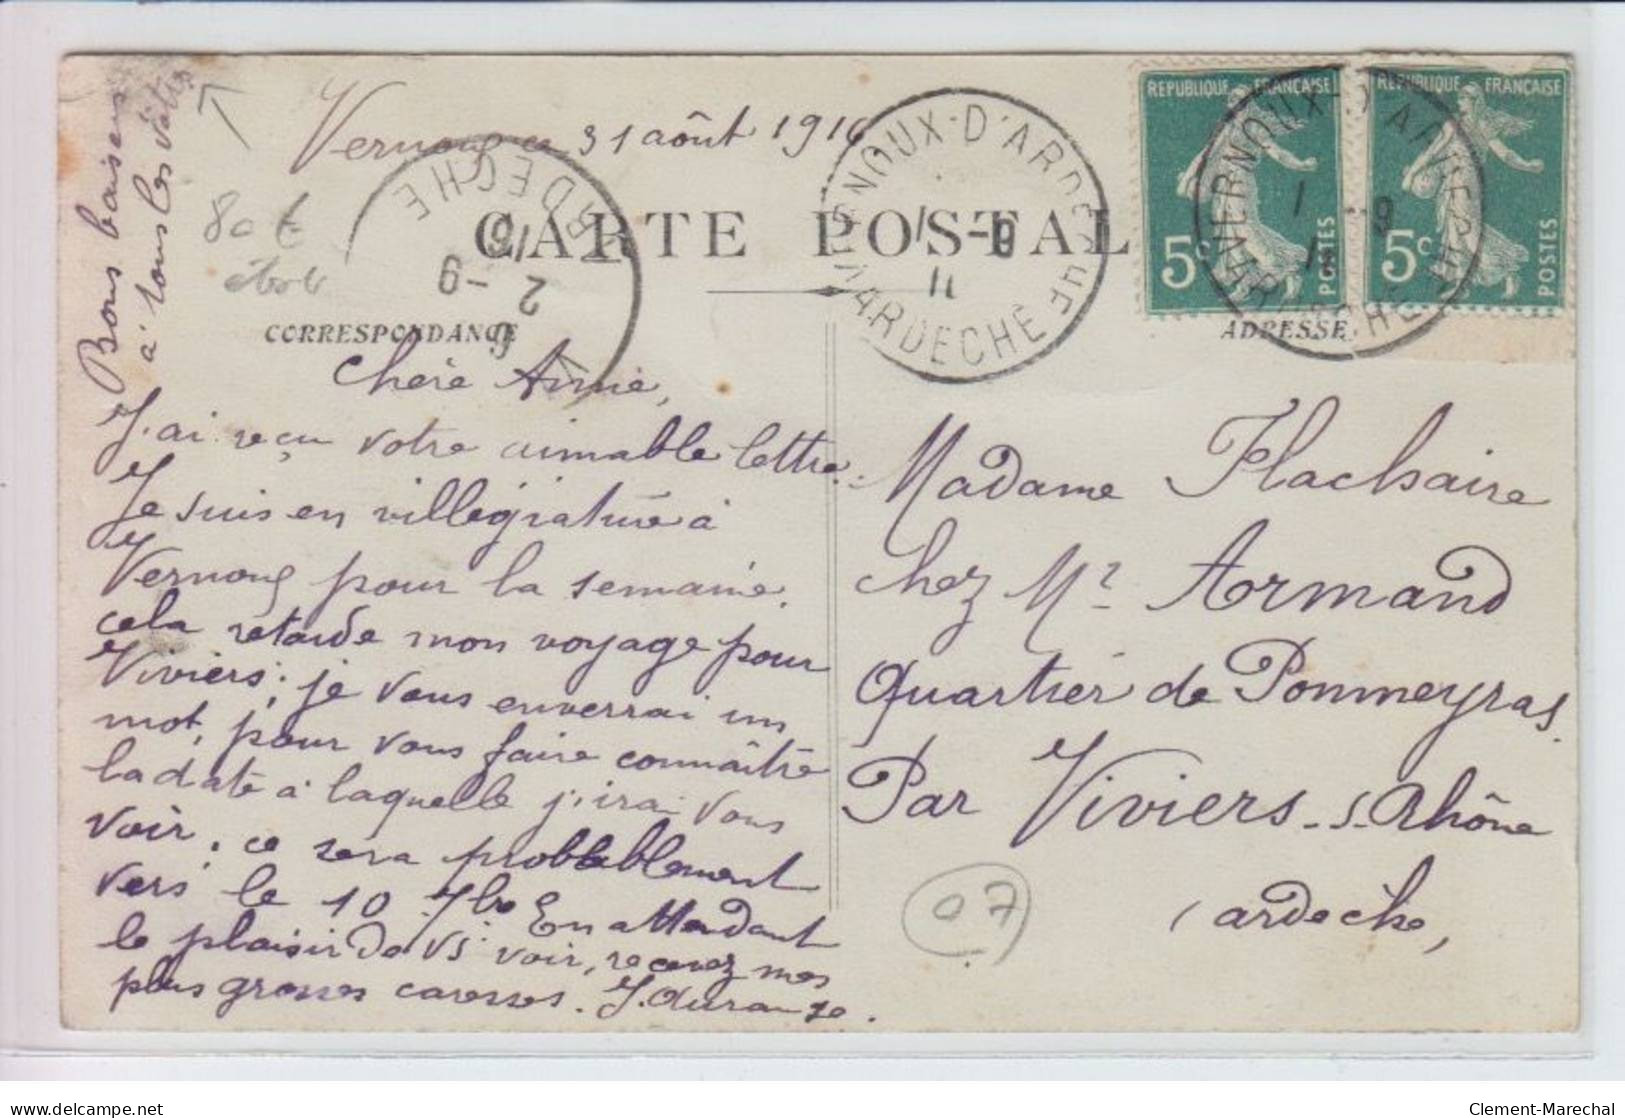 Bons baisers
à tous les vôtres
Vernoux ce 31 août 1916
CARTE POSTALE
CORRESPONDANCE
ADRESSE
Chère Amie,
J'ai reçu votre aimable lettre.
Je suis en villégiature à
Vernoux pour la semaine.
cela retarde mon voyage pour
Viviers; je vous enverrai un
mot, pour vous faire connaître
la date à laquelle j'irai vous
voir. ce sera probablement
vers le 10 7bre En attendant
le plaisir de vs voir, recevez mes
plus grosses caresses. J. Durange.
REPUBLIQUE FRANÇAISE
5c POSTES
REPUBLIQUE FRANÇAISE
5c POSTES
VERNOUX-D'ARDECHE
ARDECHE
1 -9
VERNOUX-D'ARDECHE
ARDECHE
1 -9
ARDECHE
2 -9
16
Madame Flachaire
chez Mr Armand
Quartier de Pommeyras.
Par Viviers-s-Rhône
ardèche,
07
delcampe.net
Clement-Marechal